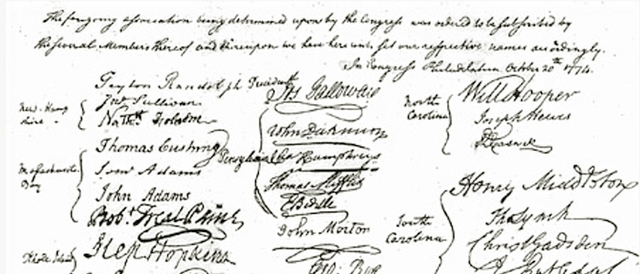 The foregoing association being determined upon by the Congress was ordered to be subscribed by
the several Members thereof and thereupon we have hereunto set our respective names accordingly.
In Congress Philadelphia October 20th 1774.
Peyton Randolph President
New Hamp
shire
Jno Sullivan
Nathl Folsom
Massachusetts
Bay
Thomas Cushing
Saml Adams
John Adams
Robt Treat Paine
Rhode Island
Step Hopkins
Pennsylvania
Jos Galloway
John Dickinson
Cha Humphreys
Thomas Mifflin
E Biddle
John Morton
Geo: Ross
North
Carolina
Will Hooper
Joseph Hewes
R Caswell
South
Carolina
Henry Middleton
Tho Lynch
Christ Gadsden